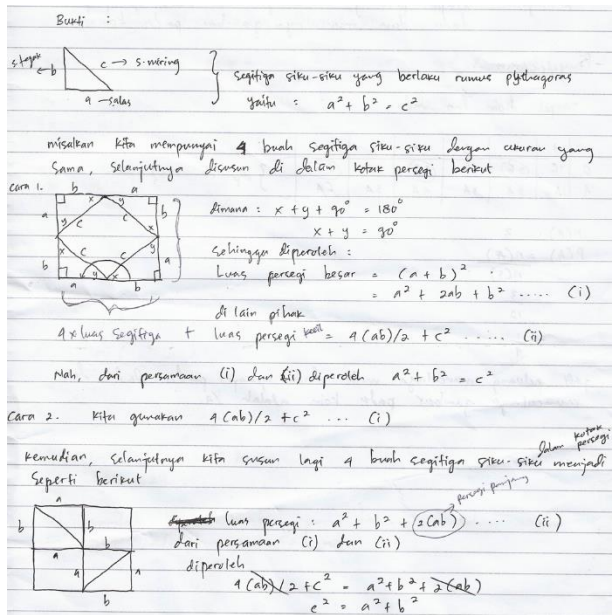 Bukti :
s. tegak b c → s. miring
a → s. alas
Segitiga siku-siku yang berlaku rumus pythagoras
yaitu : a² + b² = c²
misalkan kita mempunyai 4 buah segitiga siku-siku dengan ukuran yang
sama, selanjutnya disusun di dalam kotak persegi berikut
Cara 1.
b a
a x y b
y c c x
x c c y
b a
a y x b
dimana : x + y + 90° = 180°
x + y = 90°
sehingga diperoleh :
Luas persegi besar = (a + b)²
= a² + 2ab + b² ..... (i)
di lain pihak
4 x luas segitiga + luas persegi kecil = 4(ab)/2 + c² ..... (ii)
Nah, dari persamaan (i) dan (ii) diperoleh a² + b² = c²
Cara 2. Kita gunakan 4(ab)/2 + c² ... (i)
kemudian, selanjutnya kita susun lagi 4 buah segitiga siku-siku menjadi dalam kotak persegi
seperti berikut
a
b b
a b
a
b
luas persegi : a² + b² + 2(ab) → persegi panjang .... (ii)
dari persamaan (i) dan (ii)
diperoleh
4(ab)/2 + c² = a² + b² + 2(ab)
c² = a² + b²